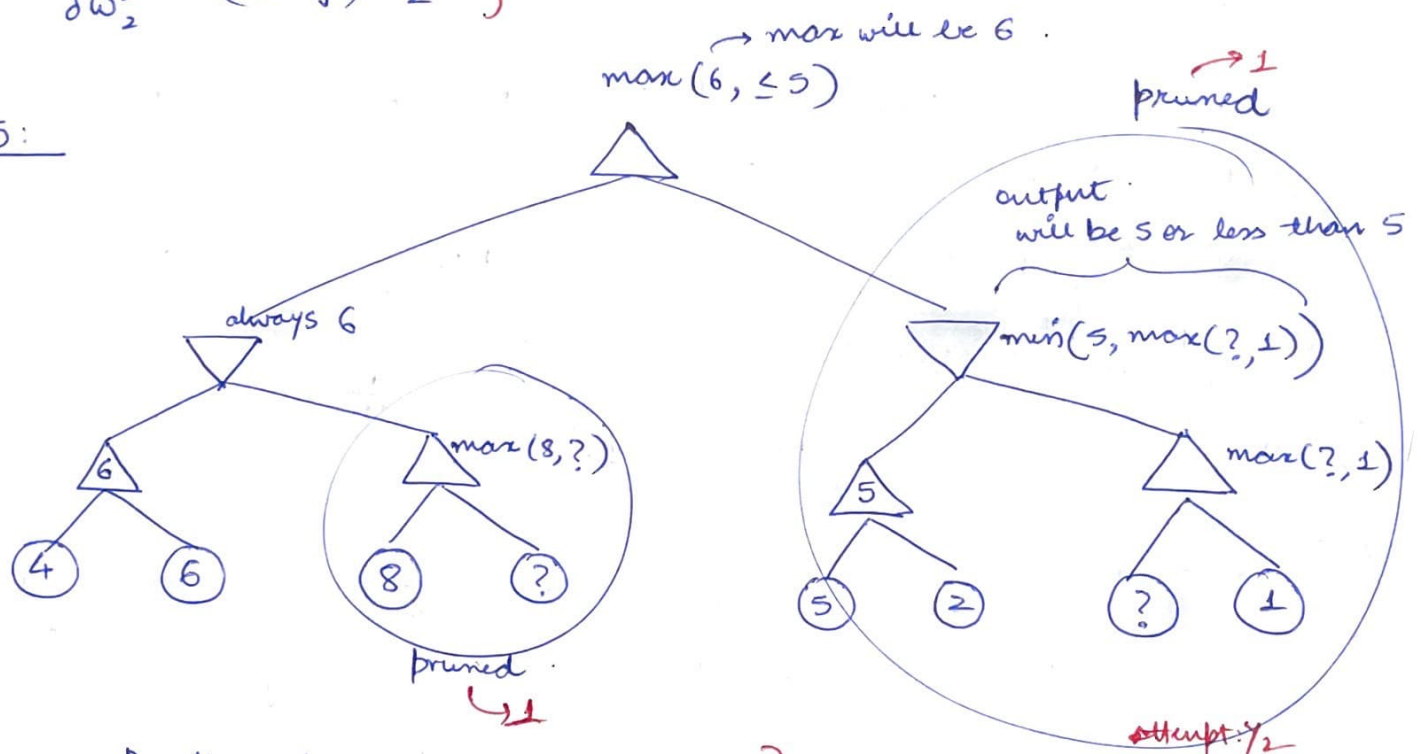 ∂w₂
max will be 6 .
max(6, ≤ 5)
1
pruned
5:
output
will be 5 or less than 5
always 6
min(5, max(?,1))
6
max(8,?)
5
max(?,1)
4 6 8 ?
5 2 ? 1
pruned .
1
attempt: 1/2